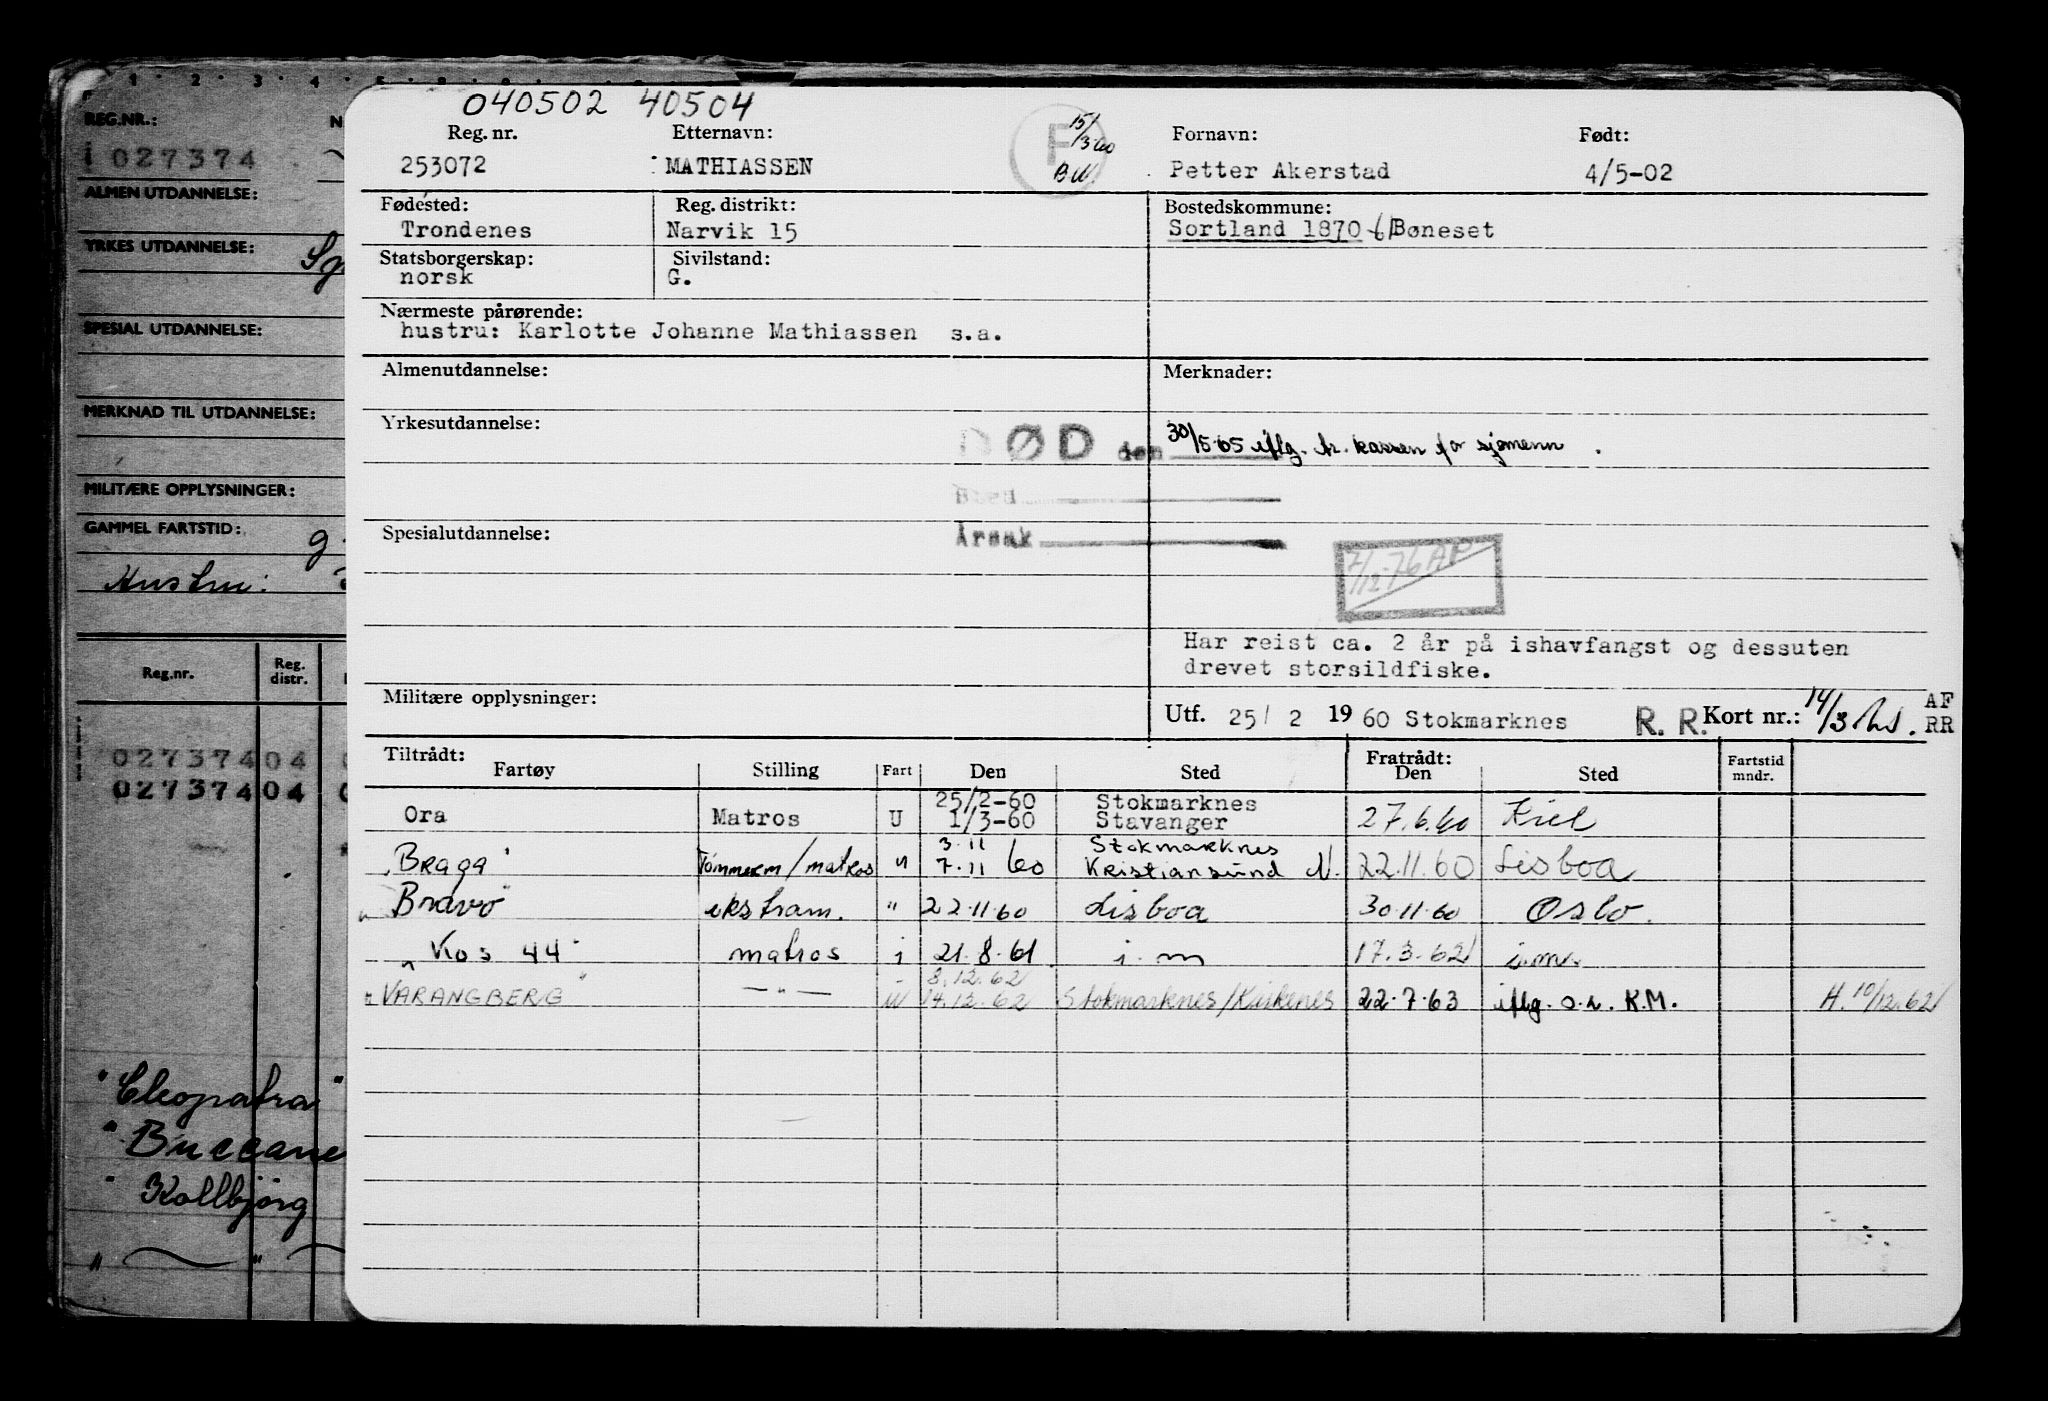 040502 40504
Reg. nr. Etternavn: Fornavn: Født:
253072 MATHIASSEN F 15/3-60 BW. Petter Akerstad 4/5-02
Fødested: Reg. distrikt: Bostedskommune:
Trondenes Narvik 15 Sortland 1870 Bøneset
Statsborgerskap: Sivilstand:
norsk G.
Nærmeste pårørende:
hustru: Karlotte Johanne Mathiassen s.a.
Almenutdannelse: Merknader:
Yrkesutdannelse:
DØD den 30/5-65 iflg. tr. kassen for sjømenn.
Sted
Spesialutdannelse: Årsak
7/12-76 AP
Har reist ca. 2 år på ishavfangst og dessuten
drevet storsildfiske.
Militære opplysninger:
Utf. 25/ 2 1960 Stokmarknes R. R. Kort nr.: 14/3 AF
RR
Tiltrådt: Fratrådt:
Fartøy Stilling Fart Den Sted Den Sted Fartstid
mndr.
25/2-60 Stokmarknes
Ora Matros U 1/3-60 Stavanger 27.6.60 Kiel
3.11 Stokmarknes
"Braga" Tömmerm/matros " 7.11 60 Kristiansund N. 22.11.60 Lisboa
" Bravo" ekstram. " 22.11.60 Lisboa 30.11.60 Oslo.
" Kos 44" matros i 21.8.61 i.m 17.3.62 i.m.
8.12.62
" VARANGBERG" —"— U 14.12.62 Stokmarknes/Kirkenes 22.7.63 iflg. o.r. K.M. H. 10/12.62
1 2 3 4
REG.NR.: N
i 027374
ALMEN UTDANNELSE:
YRKES UTDANNELSE:
SPESIAL UTDANNELSE:
MERKNAD TIL UTDANNELSE:
MILITÆRE OPPLYSNINGER:
GAMMEL FARTSTID: g
Hustru:
Reg.nr. Reg.
distr.
02737404
02737404
"Cleopatra"
"Buccane
" Kollbjørg
" "